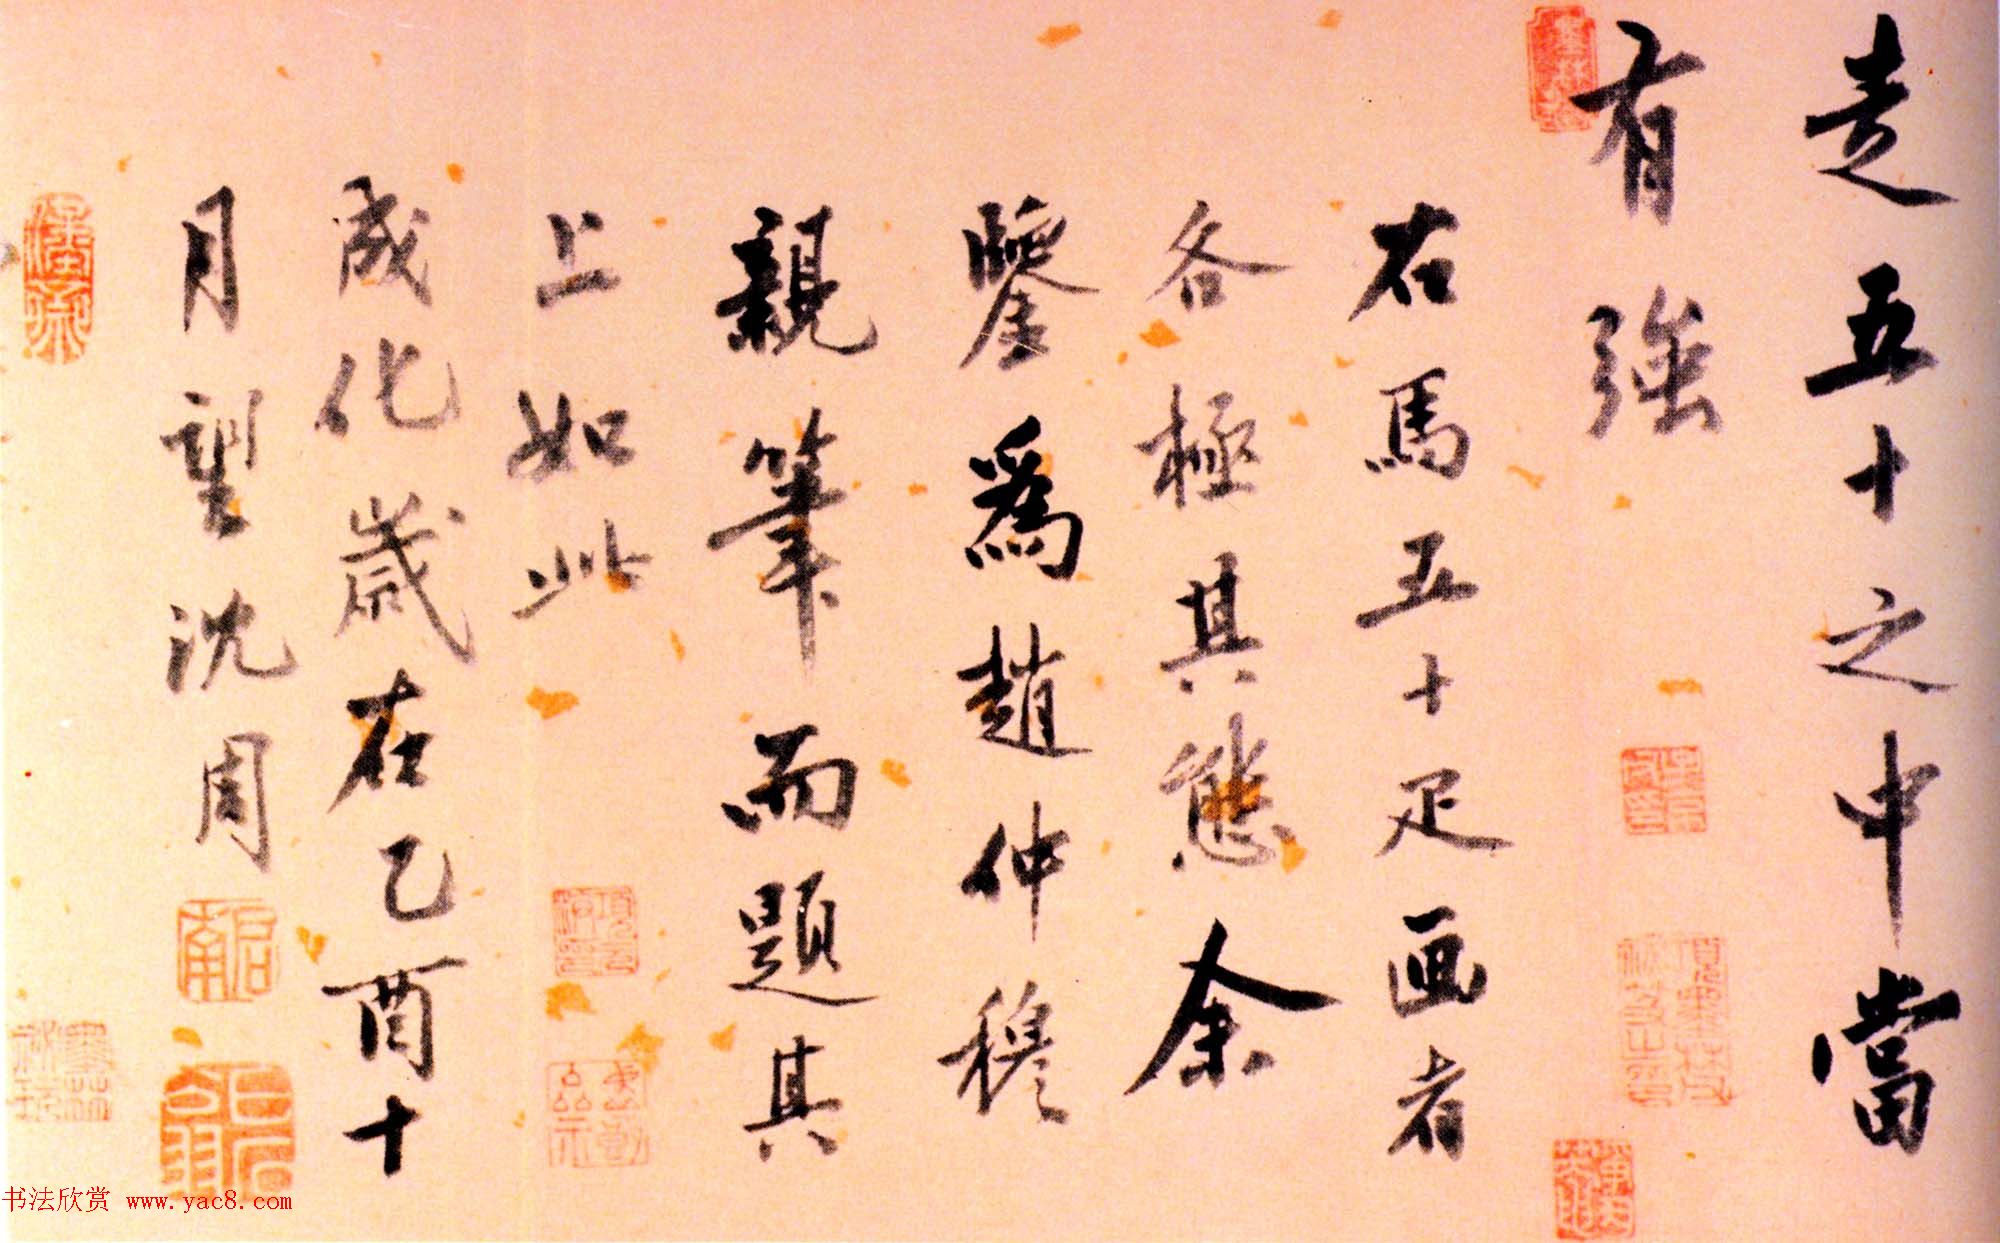 走五十之中當
有強
右馬五十疋画者
各極其態余
鑒爲趙仲穆
親筆而題其
上如此
成化歲在乙酉十
月望沈周
啓南
书法欣赏 www.yac8.com